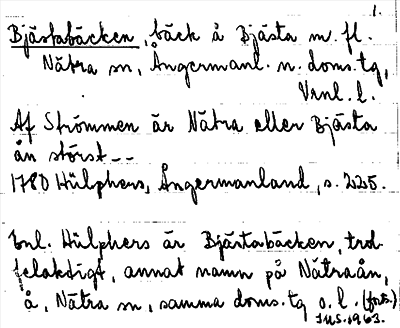 1.
Bjästabäcken, bäck å Bjästa m. fl.
Nätra sn, Ångermanl. n. doms. tg,
Vrnl. l.
Af Strömmen är Nätra eller Bjästa
ån störst--
1780 Hülphers, Ångermanland, s. 225.
Enl. Hülphers är Bjästabäcken, trol.
felaktigt, annat namn på Nätraån,
å, Nätra sn, samma doms. tg o. l. (forts.)
1963.